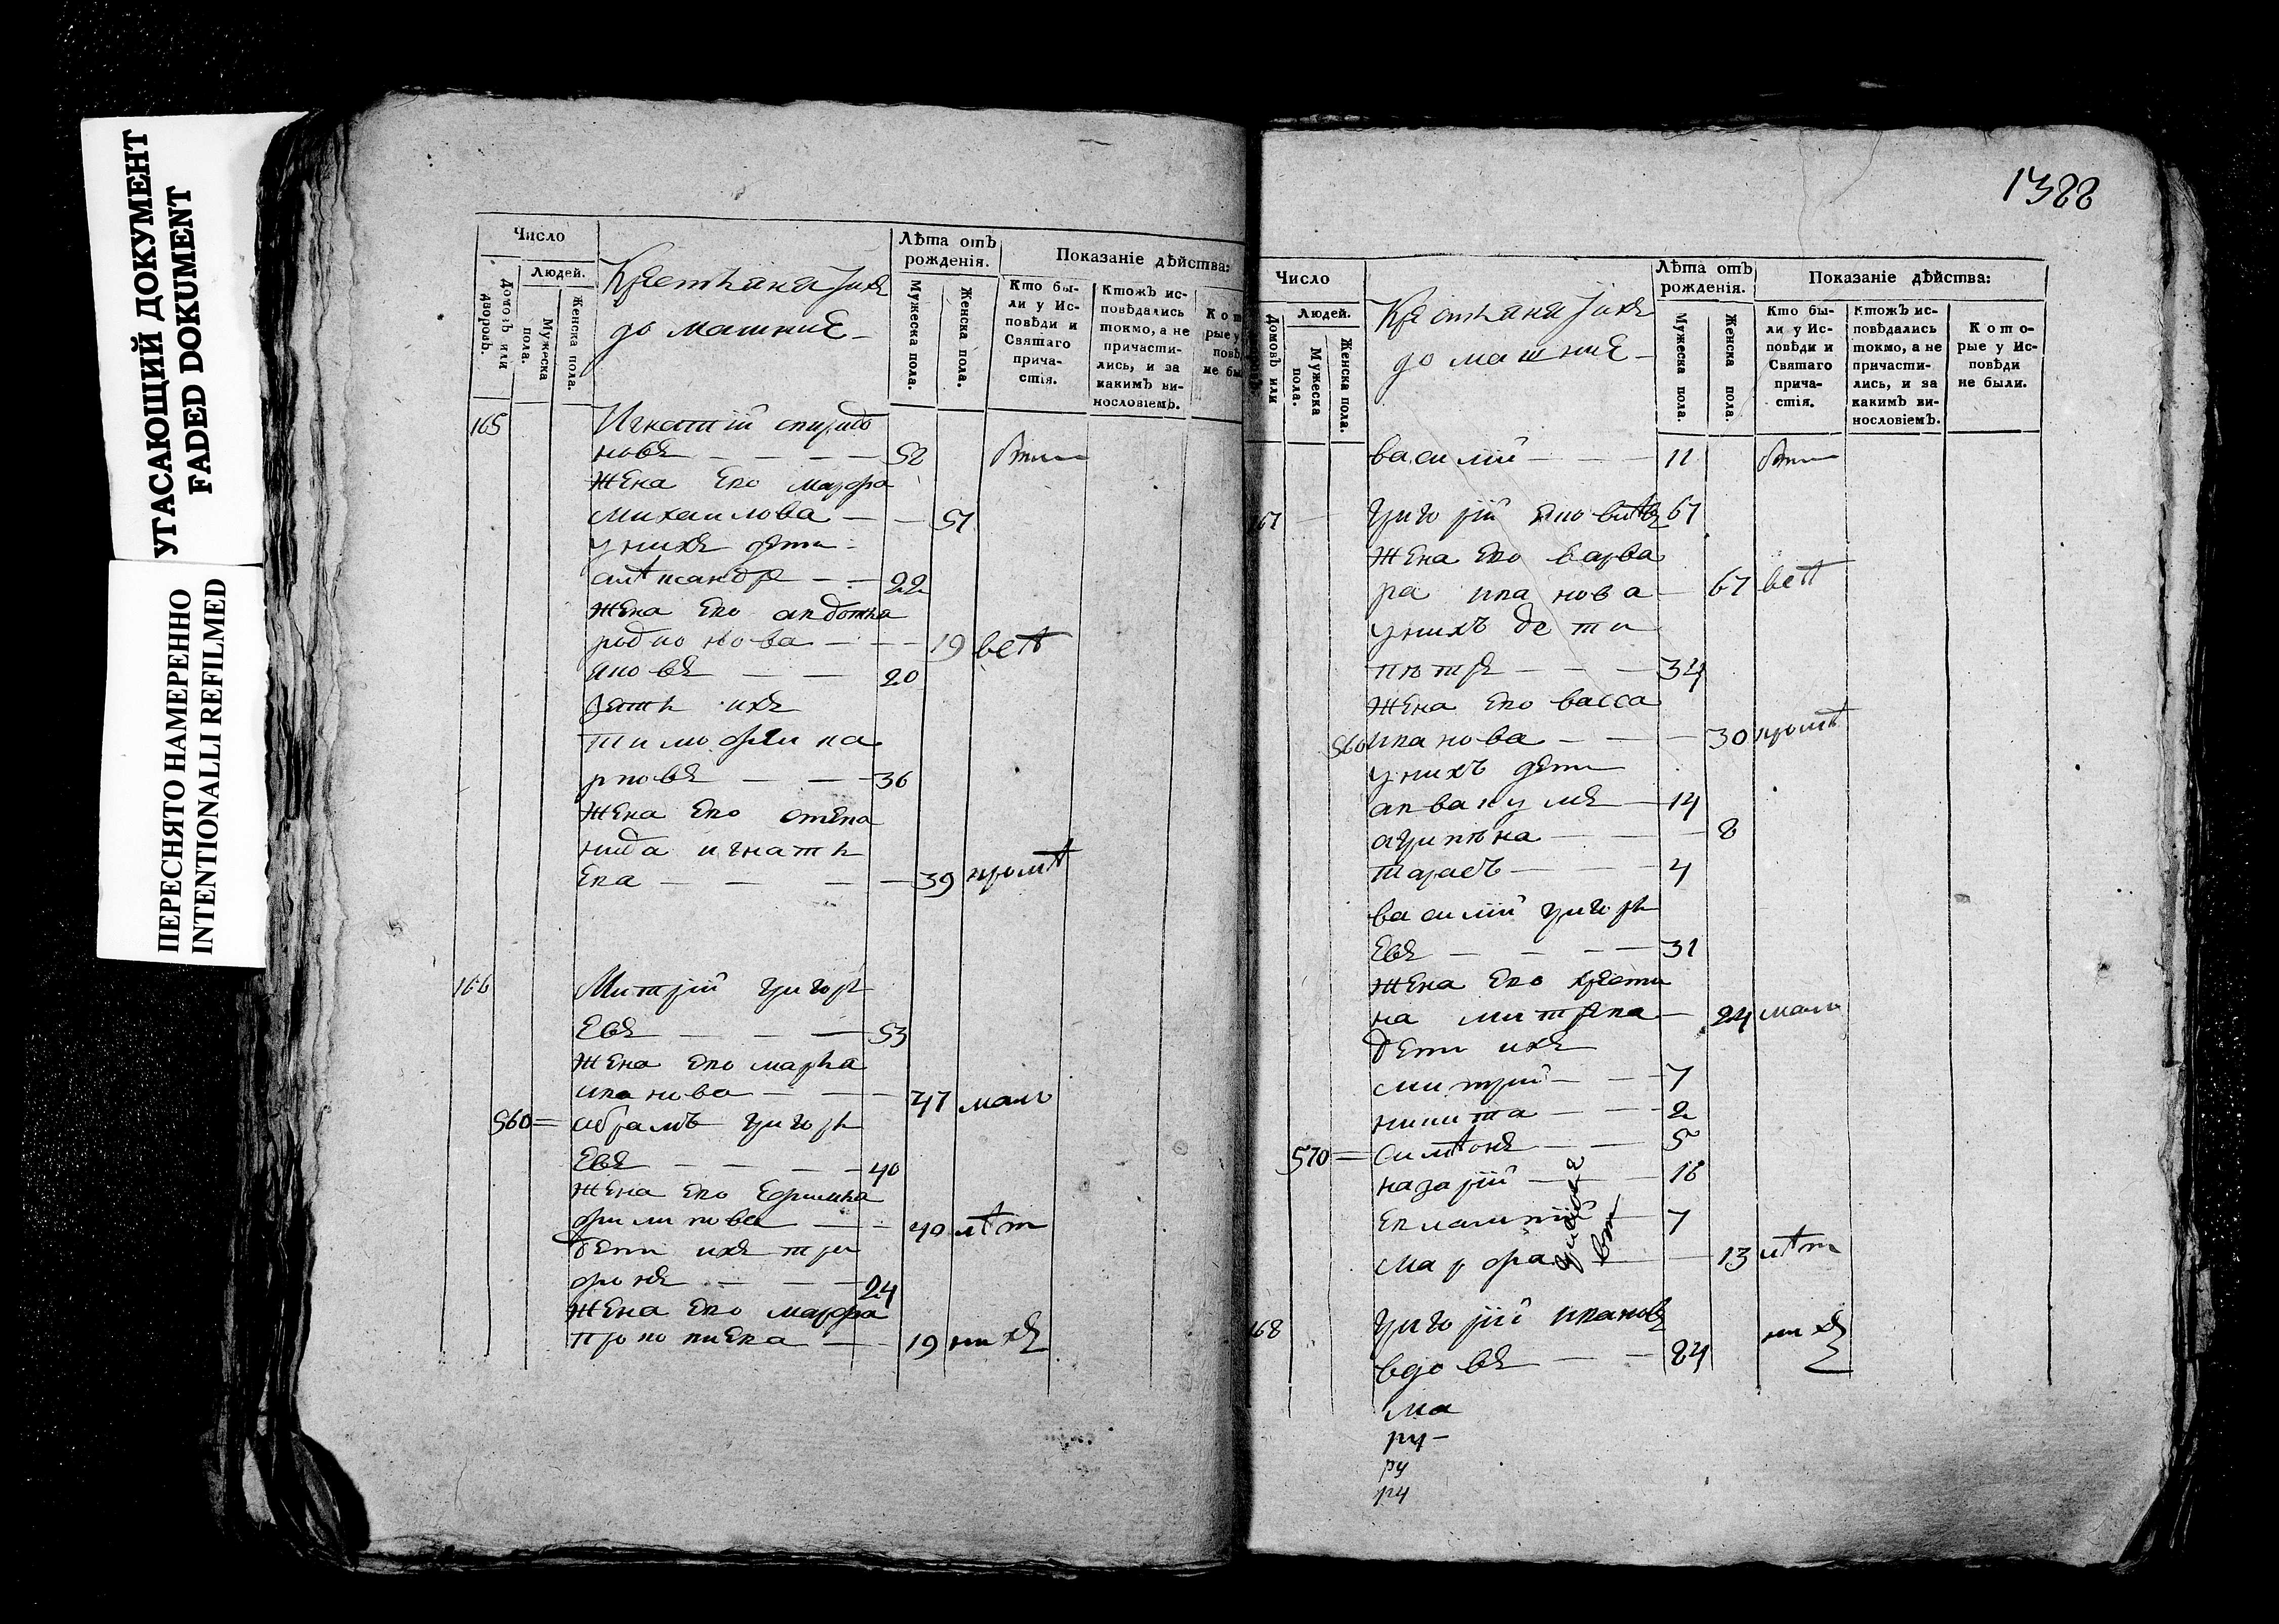 УГАСАЮЩИЙ ДОКУМЕНТ
FADED DOKUMENT
ПЕРЕСНЯТО НАМЕРЕННО
INTENTIONALLI REFILMED
Число
Людей.
Домовъ или дворовъ.
Мужеска пола.
Женска пола.
Крестьяна
домашние
Лѣта отъ рожденія.
Мужеска пола.
Женска пола.
Показаніе дѣйства:
Кто были у Исповѣди и Святаго причастія.
Ктожъ исповѣдались токмо, а не причастились, и за какимъ винословіемъ.
165
Игнатій спиридо
новъ 52
жена ево марфа
михаилова 57
у нихъ дети
алѣксандръ 22
жена ево авдотья
родионова 19 всѣ
яковъ 20
зять ихъ
тимофеи ка
рповъ 36
жена ево степа
нида игнатье
ева 39 кромѣ
166 Митрій григорь
евъ 53
жена ево марья
ивановa 47
560 абрамъ григорь
евъ 40
жена ево ефимья
филипова 40
дети ихъ три
фонъ 24
жена ево марфа
прокопиева 19 нихъ
1388
Число
Домовъ или
Людей.
Мужеска пола.
Женска пола.
Крестьяна
домашние
Лѣта отъ рожденія.
Мужеска пола.
Женска пола.
Показаніе дѣйства:
Кто были у Исповѣди и Святаго причастія.
Ктожъ исповѣдались токмо, а не причастились, и за какимъ винословіемъ.
Которые у Исповѣди не были.
василій 11
67 григорій яковлѣвъ 67
жена ево варва
ра ивановa 67 всѣ
у нихъ дети
пѣтръ 34
жена ево васса
560 иванова 30 кромѣ
у нихъ дети
аввакумъ 14
агрипѣна 8
тарасъ 4
василій григорь
евъ 31
жена ево крести
на митрева 24
дети ихъ
митрій 7
никита 2
570 симѣонъ 5
назарій 16
евлампій 7
марфа 13
68 григорій ивановъ
вдовъ 84 нихъ
ма
ру
ру
ру